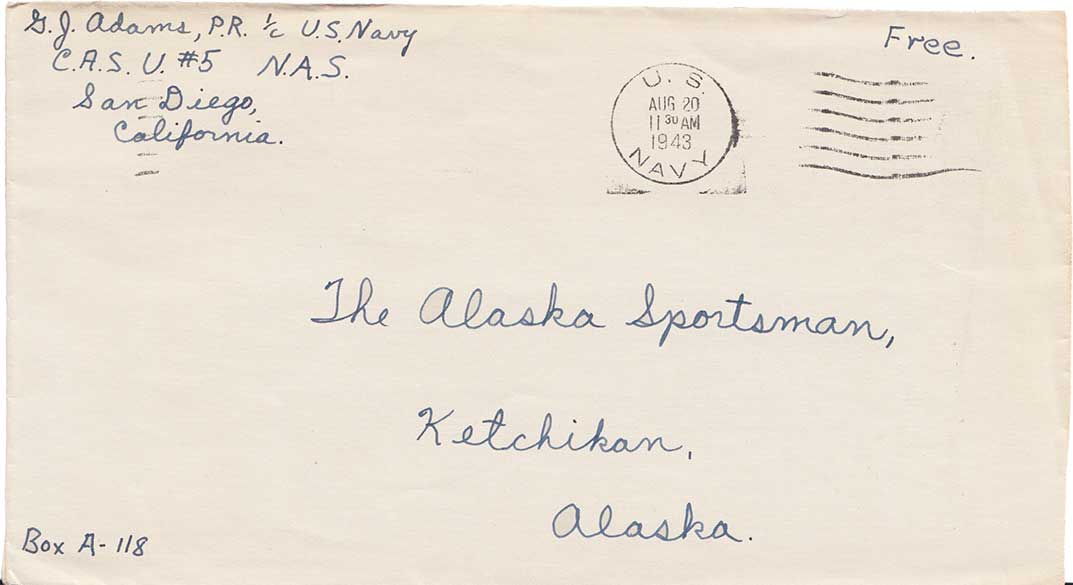 G. J. Adams, P.R. 1/c U.S. Navy
C.A.S. U. #5 N.A.S.
San Diego,
California.
Free.
U. S.
AUG 20
11 30 AM
1943
NAVY
The Alaska Sportsman,
Ketchikan,
Alaska.
Box A-118